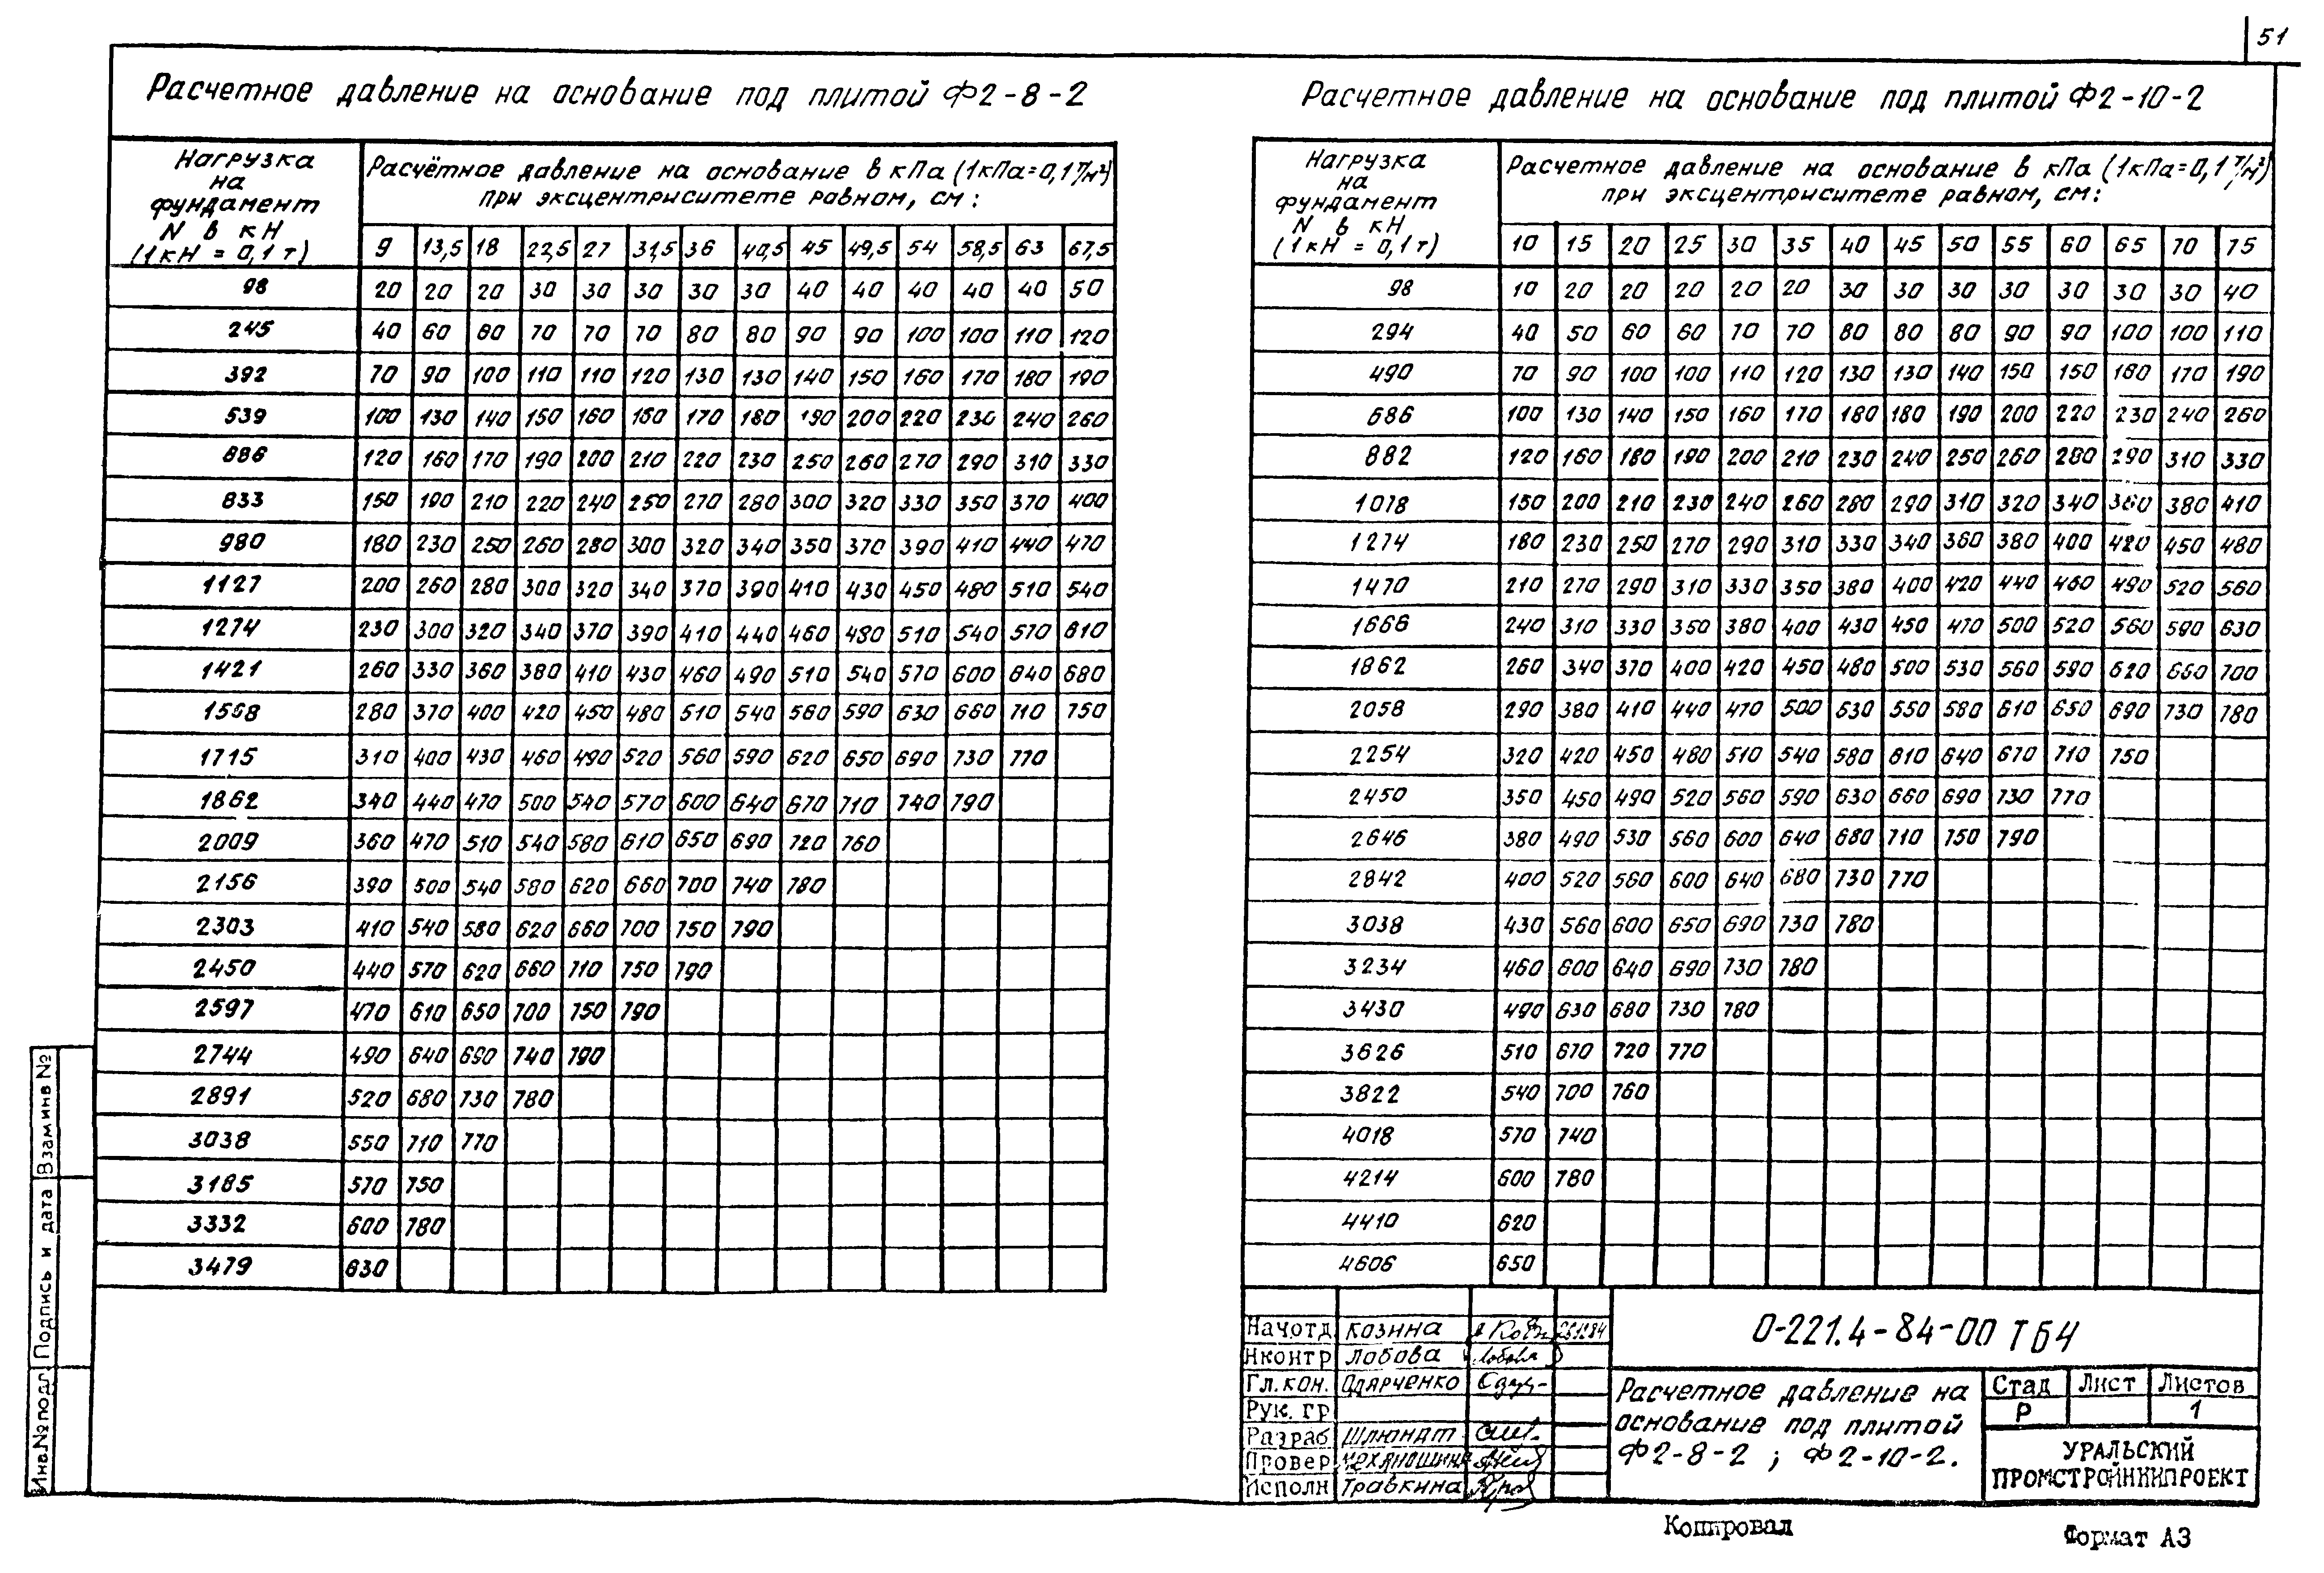 51
Расчетное давление на основание под плитой Ф2-8-2
Нагрузка на фундамент N в кН (1кН = 0,1т)
Расчётное давление на основание в кПа (1кПа=0,1т/м²)
при эксцентриситете равном, см:
9 13,5 18 22,5 27 31,5 36 40,5 45 49,5 54 58,5 63 67,5
98 20 20 20 30 30 30 30 30 40 40 40 40 40 50
245 40 60 60 70 70 70 80 80 90 90 100 100 110 120
392 70 90 100 110 110 120 130 130 140 150 160 170 180 190
539 100 130 140 150 160 160 170 180 190 200 220 230 240 260
686 120 160 170 190 200 210 220 230 250 260 270 290 310 330
833 150 190 210 220 240 250 270 280 300 320 330 350 370 400
980 180 230 250 260 280 300 320 340 350 370 390 410 440 470
1127 200 260 280 300 320 340 370 390 410 430 450 480 510 540
1274 230 300 320 340 370 390 410 440 460 480 510 540 570 610
1421 260 330 360 380 410 430 460 490 510 540 570 600 640 680
1568 280 370 400 420 450 480 510 540 560 590 630 660 710 750
1715 310 400 430 460 490 520 560 590 620 650 690 730 770
1862 340 440 470 500 540 570 600 640 670 710 740 790
2009 360 470 510 540 580 610 650 690 720 760
2156 390 500 540 580 620 660 700 740 780
2303 410 540 580 620 660 700 750 790
2450 440 570 620 660 710 750 790
2597 470 610 650 700 750 790
2744 490 640 690 740 790
2891 520 680 730 780
3038 550 710 770
3185 570 750
3332 600 780
3479 630
Расчетное давление на основание под плитой Ф2-10-2
Нагрузка на фундамент N в кН (1кН = 0,1т)
Расчетное давление на основание в кПа (1кПа=0,1т/м²)
при эксцентриситете равном, см:
10 15 20 25 30 35 40 45 50 55 60 65 70 75
98 10 20 20 20 20 20 30 30 30 30 30 30 30 40
294 40 50 60 60 70 70 80 80 80 90 90 100 100 110
490 70 90 100 100 110 120 130 130 140 150 150 160 170 190
686 100 130 140 150 160 170 180 180 190 200 220 230 240 260
882 120 160 180 190 200 210 230 240 250 260 280 290 310 330
1078 150 200 210 230 240 260 280 290 310 320 340 360 380 410
1274 180 230 250 270 290 310 330 340 360 380 400 420 450 480
1470 210 270 290 310 330 350 380 400 420 440 460 490 520 560
1666 240 310 330 350 380 400 430 450 470 500 520 560 590 630
1862 260 340 370 400 420 450 480 500 530 560 590 620 660 700
2058 290 380 410 440 470 500 530 550 580 610 650 690 730 780
2254 320 420 450 480 510 540 580 610 640 670 710 750
2450 350 450 490 520 560 590 630 660 690 730 770
2646 380 490 530 560 600 640 680 710 750 790
2842 400 520 560 600 640 680 730 770
3038 430 560 600 650 690 730 780
3234 460 600 640 690 730 780
3430 490 630 680 730 780
3626 510 670 720 770
3822 540 700 760
4018 570 740
4214 600 780
4410 620
4606 650
Инв.№ подл. Подпись и дата Взам инв №
Начотд Козина
Нконтр Лобова
Гл.кон. Одярченко
Рук. гр
Разраб Шлюндт
Провер Механошина
Исполн Травкина
0-221.4-84-00 ТБ4
Расчетное давление на
основание под плитой
Ф2-8-2 ; Ф2-10-2.
Стад Лист Листов
Р 1
УРАЛЬСКИЙ
ПРОМСТРОЙНИИПРОЕКТ
Копировал
Формат А3